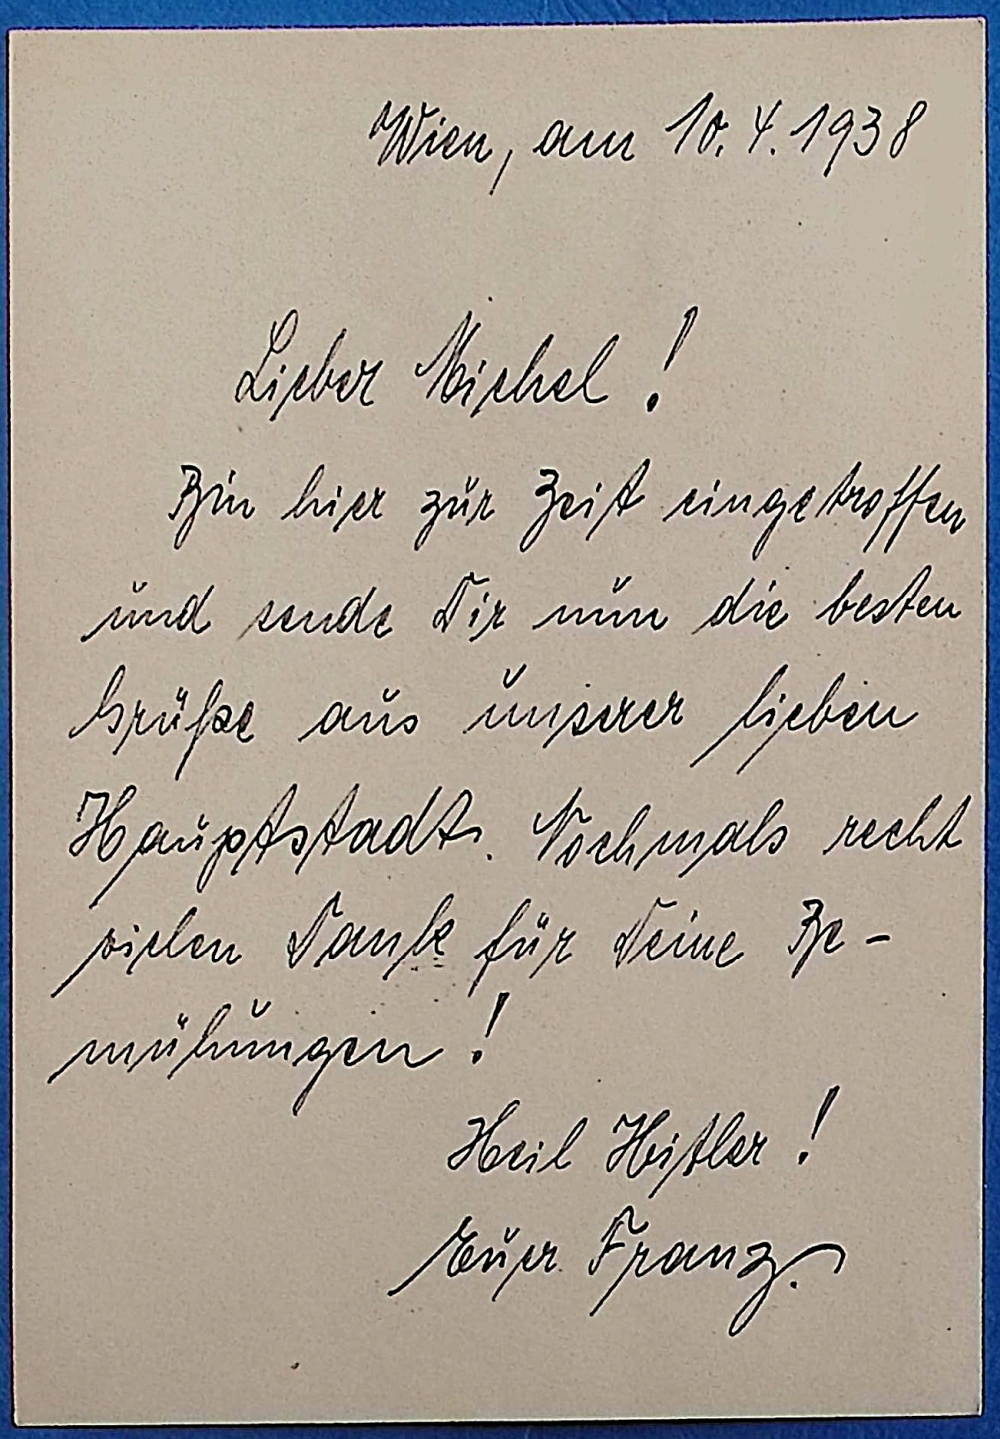 Wien, am 10.4.1938
Lieber Michel!
Bin hier zur Zeit eingetroffen
und sende Dir nun die besten
Grüße aus unserer lieben
Hauptstadt. Nochmals recht
vielen Dank für Deine Be-
mühungen!
Heil Hitler!
Euer Franz.